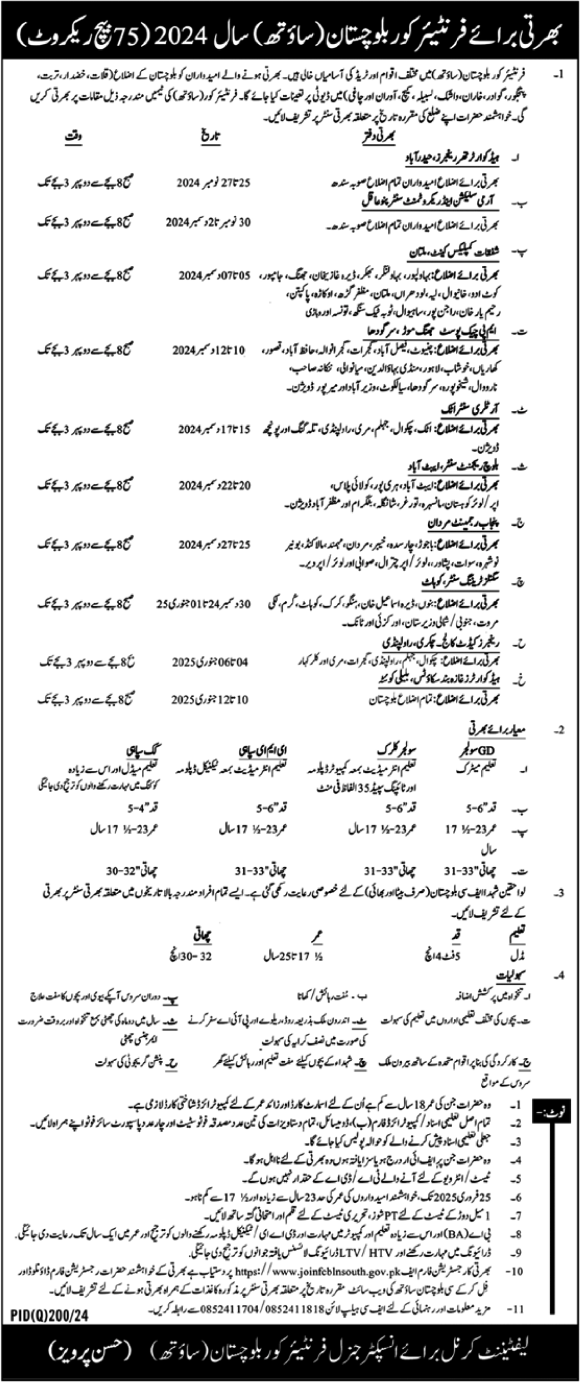 بھرتی برائے فرنٹیئر کور بلوچستان (ساؤتھ) سال 2024 (75 بیچ ریکروٹ)
1- فرنٹیئر کور بلوچستان (ساؤتھ) میں مختلف اقوام اور ٹریڈ کی آسامیاں خالی ہیں۔ بھرتی ہونے والے امیدواران کو بلوچستان کے اضلاع (قلات، خضدار، تربت،
پنجگور، گوادر، خاران، واشک، لسبیلہ، کیچ، آواران اور چاغی) میں ڈیوٹی پر تعینات کیا جائے گا۔ فرنٹیئر کور (ساؤتھ) کی ٹیمیں مندرجہ ذیل مقامات پر بھرتی کریں
گی۔ خواہشمند حضرات اپنے ضلع کی مقررہ تاریخ پر متعلقہ بھرتی سنٹر پر تشریف لائیں۔
بھرتی دفتر تاریخ وقت
ا۔ ہیڈ کوارٹر تھر رینجرز، حیدرآباد
بھرتی برائے اضلاع امیدواران تمام اضلاع صوبہ سندھ 25 تا 27 نومبر 2024 صبح 8 بجے سے دوپہر 3 بجے تک
ب۔ آرمی سلیکشن اینڈ ریکروٹمنٹ سنٹر پنوعاقل
بھرتی برائے اضلاع امیدواران تمام اضلاع صوبہ سندھ۔ 30 نومبر تا 2 دسمبر 2024 صبح 8 بجے سے دوپہر 3 بجے تک
پ۔ شفقات کمپلیکس کینٹ، ملتان
بھرتی برائے اضلاع: بہاولپور، بہاولنگر، بھکر، ڈیرہ غازیخان، جھنگ، جامپور، 05 تا 07 دسمبر 2024 صبح 8 بجے سے دوپہر 3 بجے تک
کوٹ ادو، خانیوال، لیہ، لودھراں، ملتان، مظفر گڑھ، اوکاڑہ، پاکپتن،
رحیم یار خان، راجن پور، ساہیوال، ٹوبہ ٹیک سنگھ، تونسہ اور وہاڑی
ت۔ ایم پی چیک پوسٹ جھنگ موڑ، سرگودھا
بھرتی برائے اضلاع: چنیوٹ، فیصل آباد، گجرات، گجرانوالہ، حافظ آباد، قصور، 10 تا 12 دسمبر 2024 صبح 8 بجے سے دوپہر 3 بجے تک
کھاریاں، خوشاب، لاہور، منڈی بہاؤالدین، میانوالی، ننکانہ صاحب،
نارووال، شیخوپورہ، سرگودھا، سیالکوٹ، وزیرآباد اور میرپور ڈویژن۔
ٹ۔ آرٹلری سنٹر اٹک
بھرتی برائے اضلاع: اٹک، چکوال، جہلم، مری، راولپنڈی، تلہ گنگ اور پونچھ 15 تا 17 دسمبر 2024 صبح 8 بجے سے دوپہر 3 بجے تک
ڈویژن۔
ث۔ بلوچ رجمنٹ سنٹر، ایبٹ آباد
بھرتی برائے اضلاع: ایبٹ آباد، ہری پور، کولائی پلاس، 20 تا 22 دسمبر 2024 صبح 8 بجے سے دوپہر 3 بجے تک
اپر/لوئر کوہستان، مانسہرہ، تورغر، شانگلہ، بٹگرام اور مظفر آباد ڈویژن۔
ج۔ پنجاب رجمنٹ مردان
بھرتی برائے اضلاع: باجوڑ، چارسدہ، خیبر، مردان، مہمند، مالاکنڈ، بونیر 25 تا 27 دسمبر 2024 صبح 8 بجے سے دوپہر 3 بجے تک
نوشہرہ، سوات، پشاور، لوئر/اپر چترال، صوابی اور لوئر/اپر دیر۔
چ۔ سگنلز ٹریننگ سنٹر، کوہاٹ
بھرتی برائے اضلاع: بنوں، ڈیرہ اسماعیل خان، ہنگو، کرک، کوہاٹ، کرم، لکی 30 دسمبر 24 تا 01 جنوری 25 صبح 8 بجے سے دوپہر 3 بجے تک
مروت، جنوبی/شمالی وزیرستان، اورکزئی اور ٹانک۔
ح۔ رینجرز کیڈٹ کالج۔ چکری، راولپنڈی
بھرتی برائے اضلاع: چکوال، جہلم، راولپنڈی، گجرات، مری اور کلر کہار 04 تا 06 جنوری 2025 صبح 8 بجے سے دوپہر 3 بجے تک
خ۔ ہیڈ کوارٹرز غازہ بند سکاؤٹس، بلیلی کوئٹہ
بھرتی برائے اضلاع: تمام اضلاع بلوچستان 10 تا 12 جنوری 2025 صبح 8 بجے سے دوپہر 3 بجے تک
2- معیار برائے بھرتی
GD سولجر سولجر کلرک ای ایم ای سپاہی کک سپاہی
ا۔ تعلیم میٹرک تعلیم انٹر میڈیٹ بمعہ کمپیوٹر ڈپلومہ تعلیم انٹر میڈیٹ بمعہ ٹیکنیکل ڈپلومہ تعلیم میڈل اور اس سے زیادہ
اور ٹائپنگ سپیڈ 35 الفاظ فی منٹ کوکنگ میں مہارت رکھنے والوں کو ترجیح دی جائیگی
ب۔ قد "6-5 قد "6-5 قد "6-5 قد "4-5
پ۔ عمر 23-½ 17 عمر 23-½ 17 سال عمر 23-½ 17 سال عمر 23-½ 17 سال
سال
ت۔ چھاتی "33-31 چھاتی "33-31 چھاتی "33-31 چھاتی "32-30
3- لواحقین شہدا ایف سی بلوچستان (صرف بیٹا اور بھائی) کے لئے خصوصی رعایت رکھی گئی ہے۔ ایسے تمام افراد مندرجہ بالا تاریخوں میں متعلقہ بھرتی سنٹر پر بھرتی
کے لئے تشریف لائیں۔
تعلیم قد عمر چھاتی
مڈل 5 فٹ 4 انچ ½ 17 تا 25 سال 32 -30 انچ
4- سہولیات
ا۔ تنخواہ میں پرکشش اضافہ ب۔ مفت رہائش/کھانا پ۔ دوران سروس آپکے بیوی اور بچوں کا مفت علاج
ت۔ بچوں کی مختلف تعلیمی اداروں میں تعلیم کی سہولت ٹ۔ اندرون ملک بذریعہ روڈ، ریلوے اور پی آئی اے سفر کرنے ث۔ سال میں دو ماہ کی چھٹی بمع تنخواہ اور بروقت ضرورت
کی صورت میں نصف کرایہ کی سہولت ایمرجنسی چھٹی
ج۔ کارکردگی کی بنا پر اقوام متحدہ کے ساتھ بیرون ملک چ۔ شہداء کے بچوں کیلئے مفت تعلیم اور رہائش کیلئے گھر ح۔ پنشن گریجوٹی کی سہولت
سروس کے مواقع
نوٹ:-
1- وہ حضرات جن کی عمر 18 سال سے کم ہے اُن کے لئے اسمارٹ کارڈ اور زائد عمر کے لئے کمپیوٹرائزڈ شناختی کارڈ لازمی ہے۔
2- تمام اصل تعلیمی اسناد/کمپیوٹرائزڈ فارم (ب)، ڈومیسائل، تمام دستاویزات کی تین عدد مصدقہ فوٹو سٹیٹ اور چار عدد پاسپورٹ سائز فوٹو اپنے ہمراہ لائیں۔
3- جعلی تعلیمی اسناد پیش کرنے والے کو حوالہ پولیس کیا جائے گا۔
4- وہ حضرات جن پر ایف آئی آر درج ہو یا سزا یافتہ ہوں وہ بھرتی کے لئے نااہل ہو گا۔
5- ٹیسٹ/انٹرویو کے لئے آنے والے ٹی اے/ڈی اے کے حقدار نہیں ہوں گے۔
6- 25 فروری 2025 تک، خواہشمند امیدواروں کی عمر کی حد 23 سال سے زیادہ اور ½ 17 سے کم نا ہو۔
7- 1 میل دوڑ کے ٹیسٹ کے لئے PT شوز، تحریری ٹیسٹ کے لئے قلم اور امتحانی گتہ ساتھ لائیں۔
8- بی اے (BA) اور اس سے زیادہ تعلیم اور کمپیوٹر میں مہارت اور ڈی اے ای/ٹیکنیکل ڈپلومہ رکھنے والوں کو ترجیح اور عمر میں ایک سال تک رعایت دی جائیگی۔
9- ڈرائیونگ میں مہارت رکھنے اور LTV/HTV ڈرائیونگ لائسنس یافتہ جوانوں کو ترجیح دی جائیگی۔
10- بھرتی کا رجسٹریشن فارم ایف https://www.joinfcblnsouth.gov.pk پر دستیاب ہے بھرتی کے خواہشمند حضرات، رجسٹریشن فارم ڈاؤنلوڈ اور
فل کر کے سی بلوچستان ساؤتھ کی ویب سائٹ مقررہ تاریخ پر متعلقہ بھرتی سنٹر پر مذکورہ کاغذات کے ہمراہ بھرتی ہونے کے لئے تشریف لائیں۔
11- مزید معلومات اور رہنمائی کے لئے ایف سی ہیلپ لائن 0852411704/0852411818 سے رابطہ کریں۔
PID(Q)200/24
لیفٹیننٹ کرنل برائے انسپکٹر جنرل فرنٹیئر کور بلوچستان (ساؤتھ) (حسن پرویز)